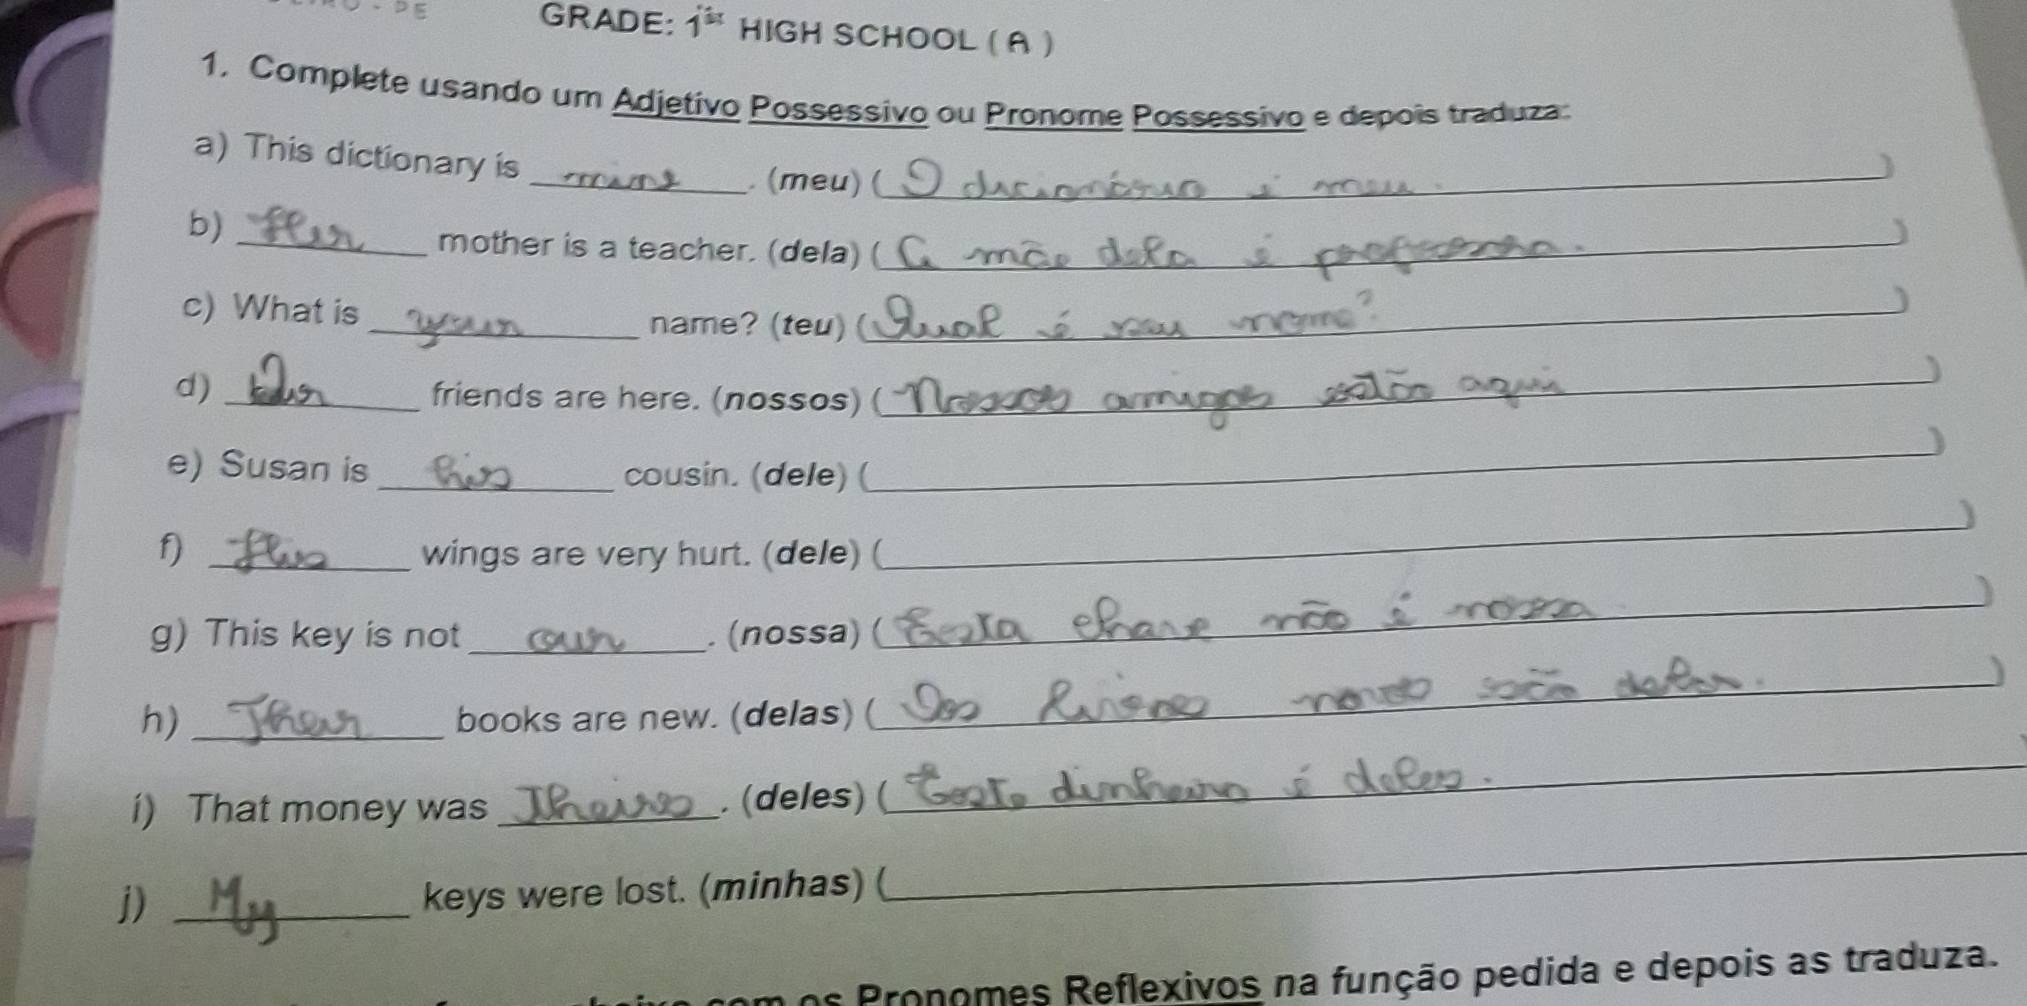 GRADE: 1st HIGH SCHOOL ( A )
1. Complete usando um Adjetivo Possessivo ou Pronome Possessivo e depois traduza:
a) This dictionary is mine. (meu) ( O dicionário é meu. )
b) Her mother is a teacher. (dela) ( A mãe dela é professora. )
c) What is your name? (teu) ( Qual é seu nome? )
d) friends are here. (nossos) ( Nossos amigos estão aqui )
e) Susan is his cousin. (dele) ( )
f) His wings are very hurt. (dele) ( )
g) This key is not our. (nossa) ( Esta chave não é nossa )
h) Their books are new. (delas) ( Os livros novos são delas. )
i) That money was Theirs. (deles) ( Este dinheiro é deles.
j) My keys were lost. (minhas) (
os Pronomes Reflexivos na função pedida e depois as traduza.